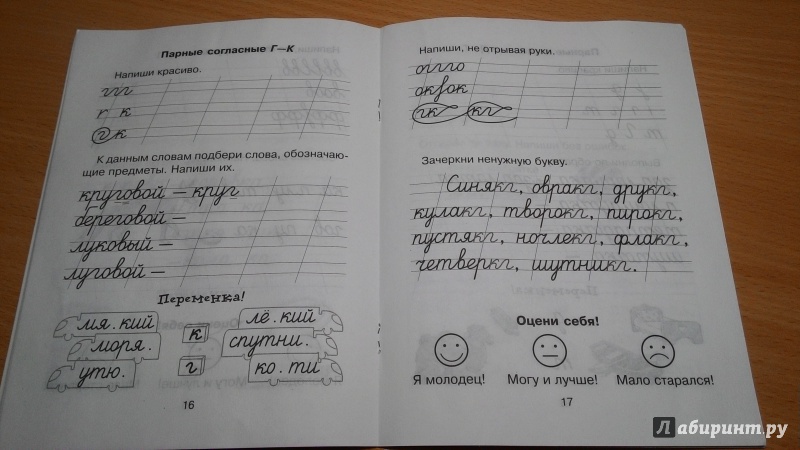 Парные согласные Г—К
Напиши красиво.
ггг
г к
г к
К данным словам подбери слова, обозначаю-
щие предметы. Напиши их.
круговой — круг
береговой —
луковый —
луговой —
Переменка!
мя.кий
лё.кий
моря.
к
спутни.
утю.
г
ко.ти
16
Напиши, не отрывая руки.
огго
окгок
гк кг
Зачеркни ненужную букву.
Синякг, овракг, друкг,
кулакг, творокг, пирокг,
пустякг, ночлекг, флакг,
четверкг, шутникг.
Оцени себя!
Я молодец! Могу и лучше! Мало старался!
17
Лабиринт.ру